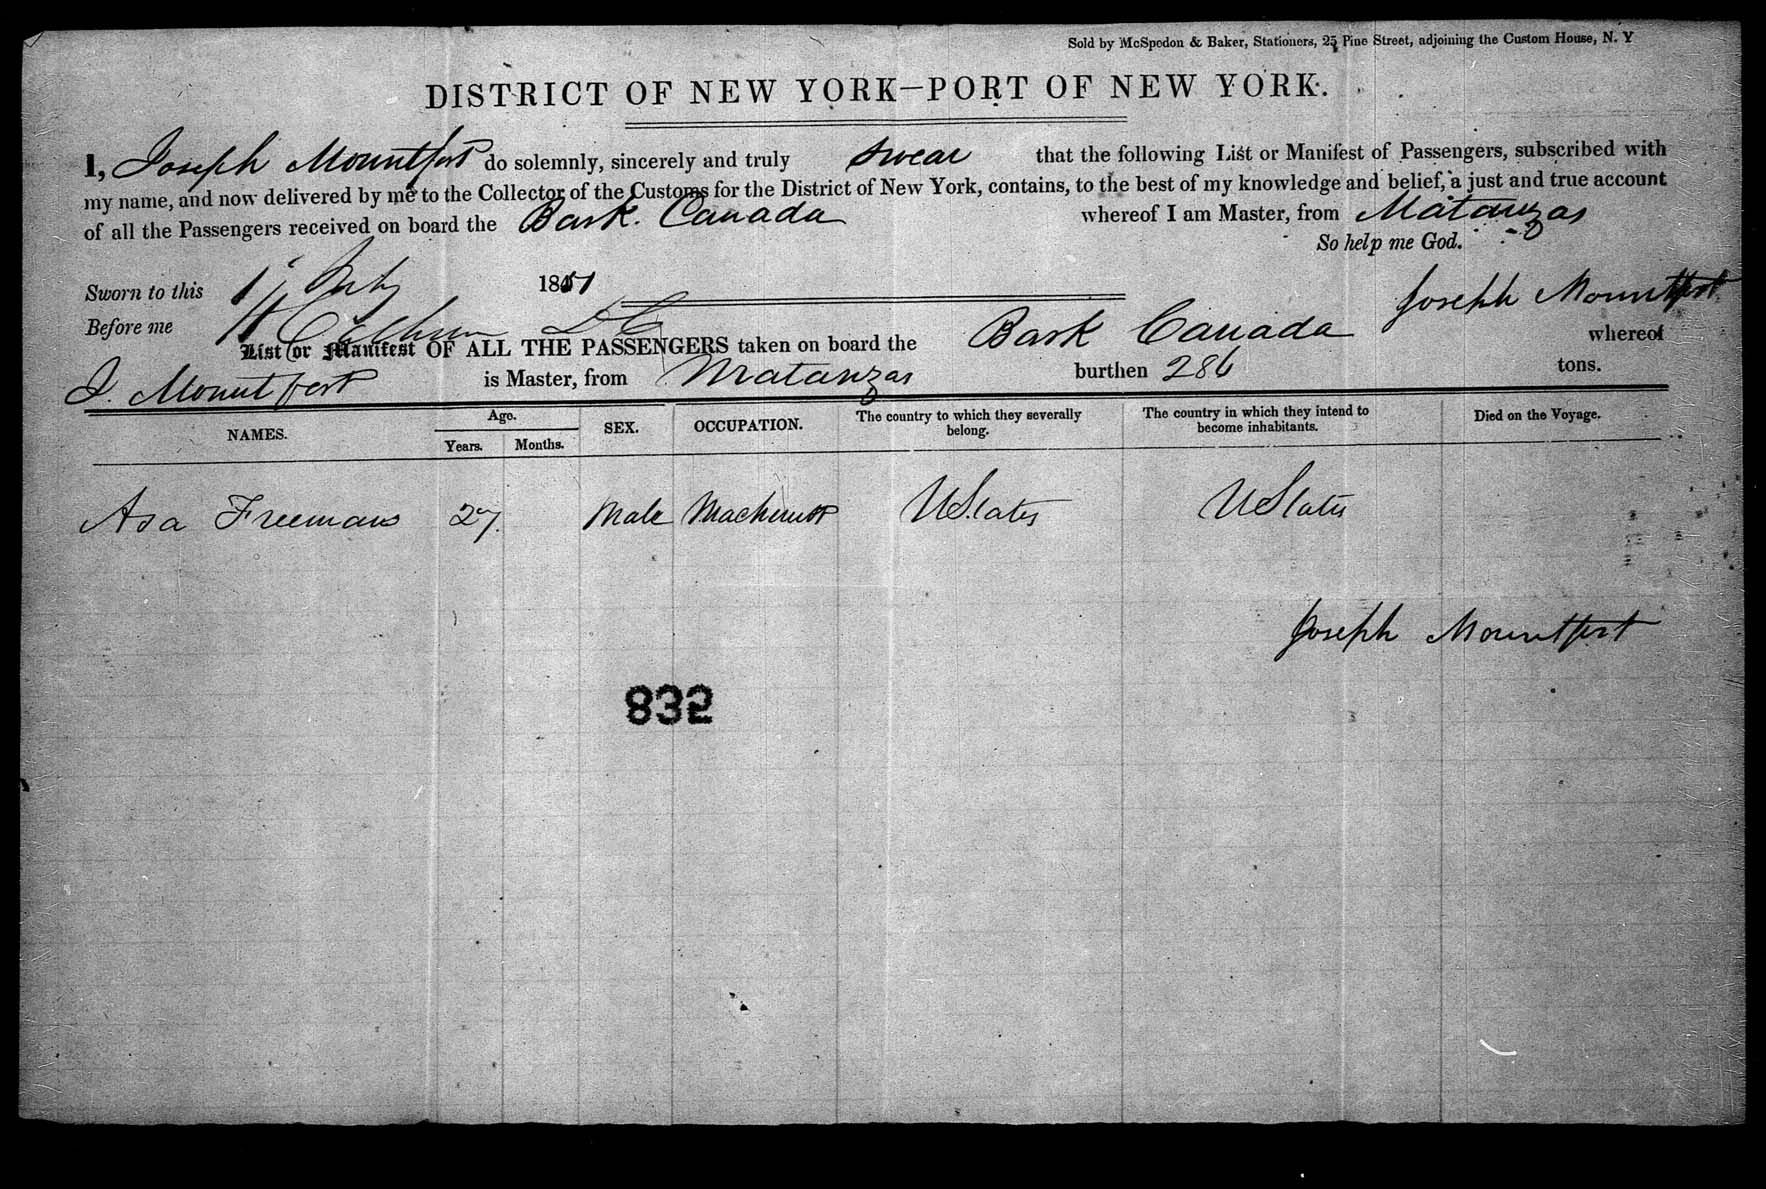 Sold by McSpedon & Baker, Stationers, 25 Pine Street, adjoining the Custom House, N. Y
DISTRICT OF NEW YORK—PORT OF NEW YORK.
I, Joseph Mountfort do solemnly, sincerely and truly swear that the following List or Manifest of Passengers, subscribed with
my name, and now delivered by me to the Collector of the Customs for the District of New York, contains, to the best of my knowledge and belief, a just and true account
of all the Passengers received on board the Bark. Canada whereof I am Master, from Matanzas
So help me God.
Sworn to this 1 July 1851
Joseph Mountfort
Before me
List or Manifest OF ALL THE PASSENGERS taken on board the Bark Canada whereof
J. Mountfort is Master, from Matanzas burthen 286 tons.
NAMES. Age. Years. Months. SEX. OCCUPATION. The country to which they severally belong. The country in which they intend to become inhabitants. Died on the Voyage.
Asa Freeman 27 Male Machinist UStates UStates
Joseph Mountfort
832